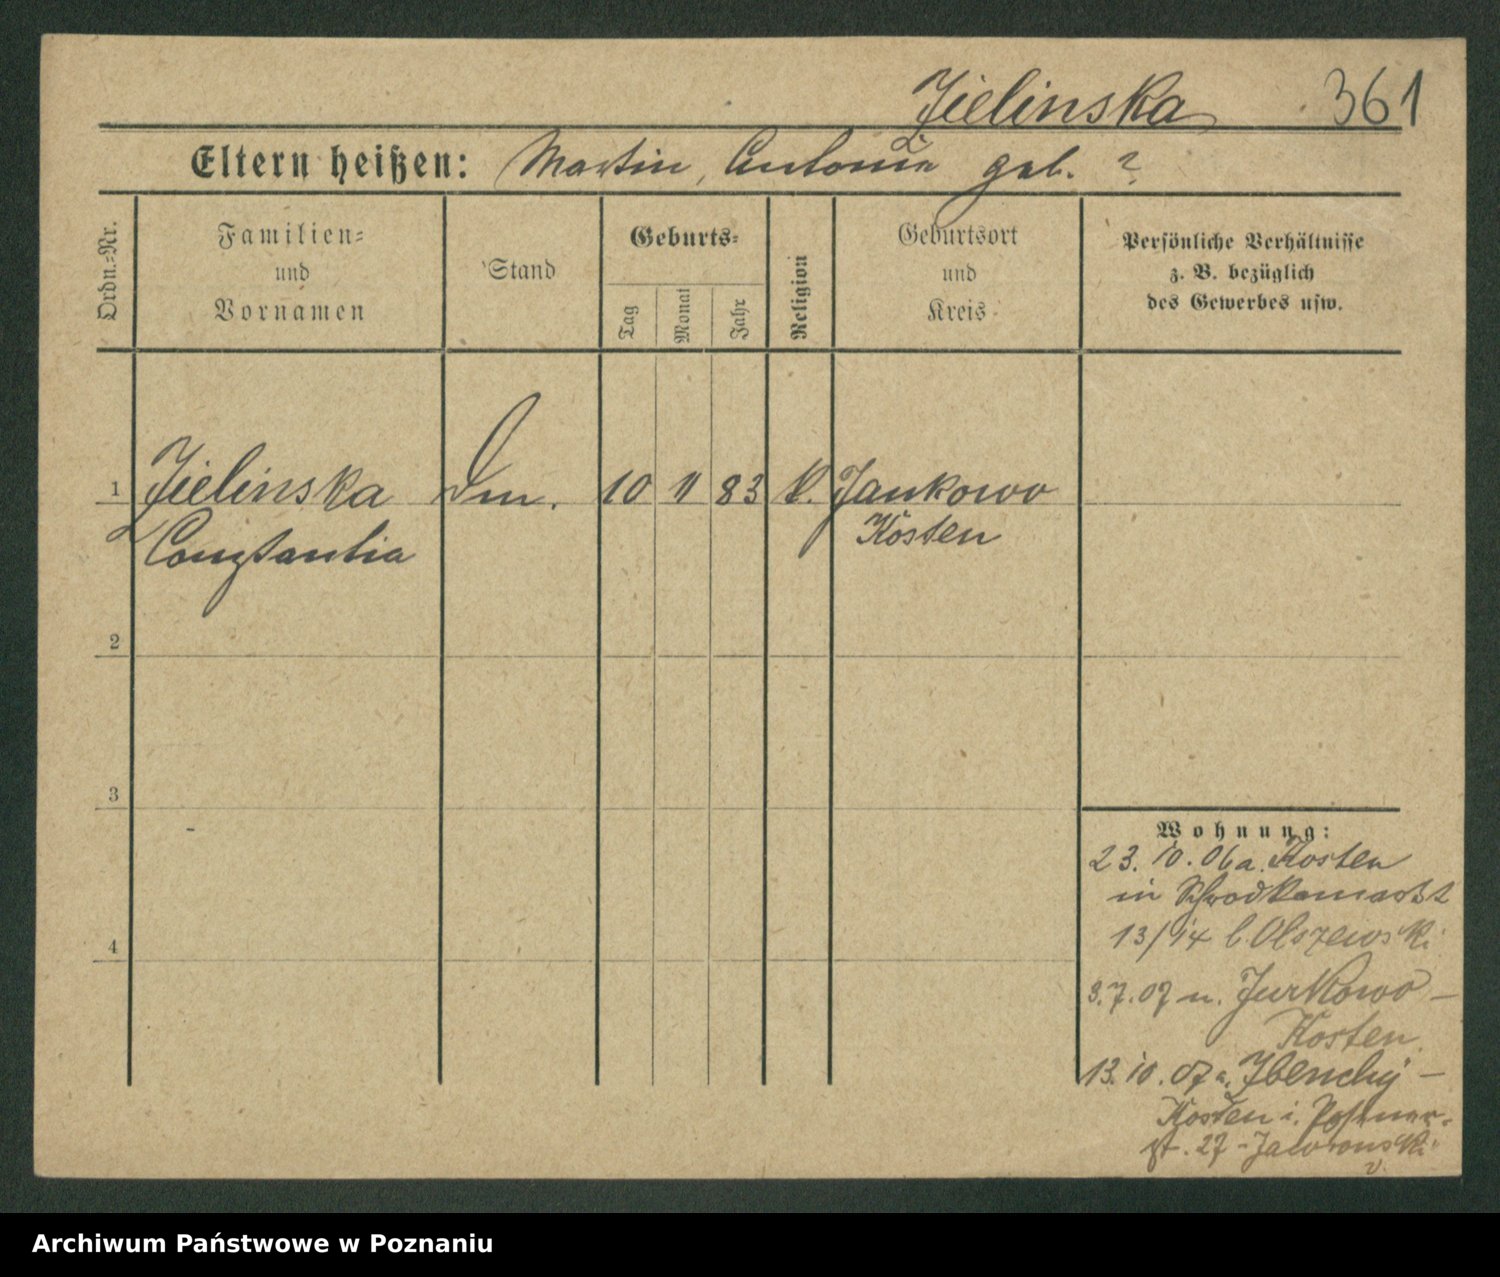 Zielinska 361
Eltern heißen: Martin, Antonie geb. ?
Ordn.-Nr.
Familien-
und
Vornamen
Stand
Geburts-
Tag
Monat
Jahr
Religion
Geburtsort
und
Kreis
Persönliche Verhältnisse
z. B. bezüglich
des Gewerbes usw.
1 Zielinska Dm. 10 11 83 k. Jankowo
Constantia Kosten
2
3
4
Wohnung:
23. 10. 06 a. Kosten
in Schrodkamarkt
13/14 b. Olszewski
3.7.07 n. Jurkowo –
Kosten
13. 10. 07 a. Zbenchy –
Kosten i. Posener-
st. 27 - Jaworowski
Archiwum Państwowe w Poznaniu